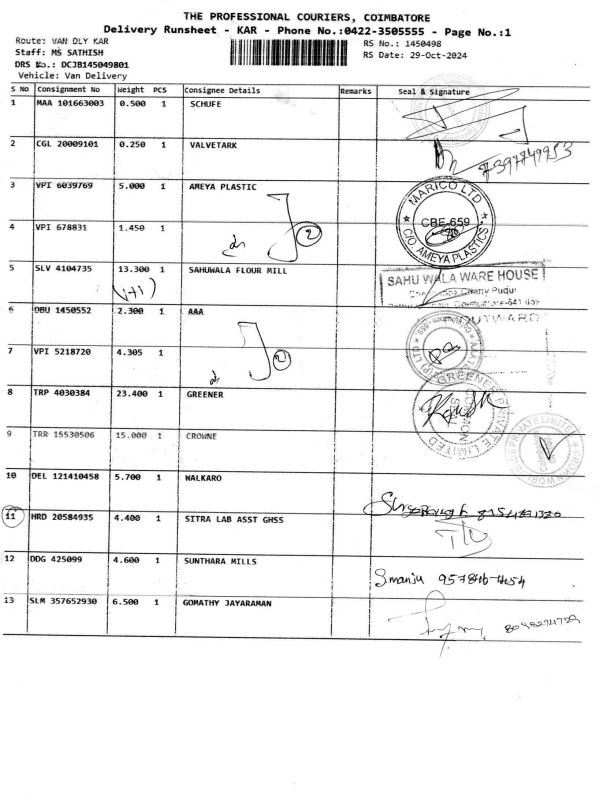 THE PROFESSIONAL COURIERS, COIMBATORE
Delivery Runsheet - KAR - Phone No.:0422-3505555 - Page No.:1
Route: VAN DLY KAR RS No.: 1450498
Staff: MS SATHISH RS Date: 29-Oct-2024
DRS No.: DCJB145049801
Vehicle: Van Delivery
S No Consignment No Weight PCS Consignee Details Remarks Seal & Signature
1 MAA 101663003 0.500 1 SCHUFE
2 CGL 20009101 0.250 1 VALVETARK
7397749953
3 VPI 6039769 5.000 1 AMEYA PLASTIC
MARICO LTD
CBE-659
C/O AMEYA PLASTICS
4 VPI 678831 1.450 1
2
5 SLV 4104735 13.300 1 SAHUWALA FLOUR MILL
(1+1)
SAHU WALA WARE HOUSE
OUTWARD
6 DBU 1450552 2.300 1 AAA
7 VPI 5218720 4.305 1
2
8 TRP 4030384 23.400 1 GREENER
GREENER PRIVATE LIMITED
9 TRR 15530506 15.000 1 CROWNE
CROWN WORLDWIDE PRIVATE LIMITED
10 DEL 121410458 5.700 1 WALKARO
11 HRD 20584935 4.400 1 SITRA LAB ASST GHSS
12 DDG 425099 4.600 1 SUNTHARA MILLS
Smaniu 957846-4654
13 SLM 357652930 6.500 1 GOMATHY JAYARAMAN
8098274729